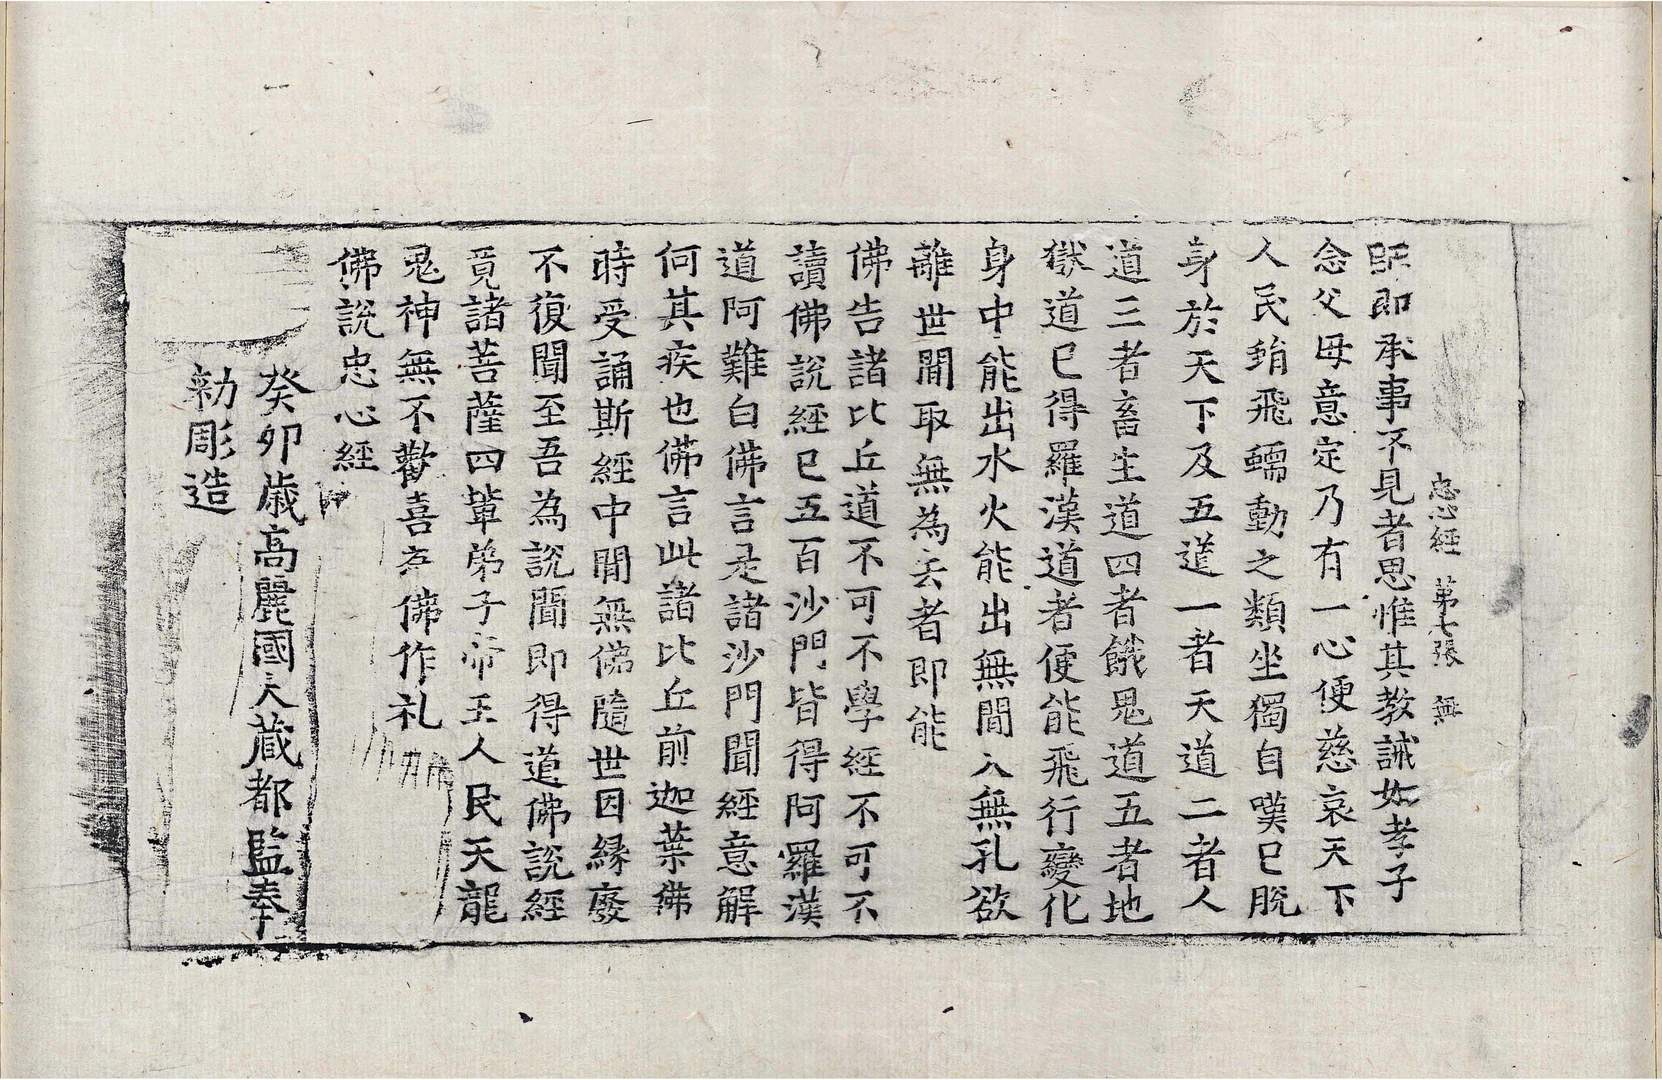 忠心經 第七張 無
眠即承事不見者思惟其教誡如孝子
念父母意定乃有一心便慈哀天下
人民蜎飛蠕動之類坐獨自嘆已脫
身於天下及五道一者天道二者人
道三者畜生道四者餓鬼道五者地
獄道已得羅漢道者便能飛行變化
身中能出水火能出無閒入無孔欲
離世閒取無為去者即能
佛告諸比丘道不可不學經不可不
讀佛說經已五百沙門皆得阿羅漢
道阿難白佛言是諸沙門聞經意解
何其疾也佛言此諸比丘前迦葉佛
時受誦斯經中閒無佛隨世因緣廢
不復聞至吾為說聞即得道佛說經
竟諸菩薩四輩弟子帝王人民天龍
鬼神無不歡喜為佛作礼
佛說忠心經
癸卯歲高麗國大藏都監奉
勑彫造